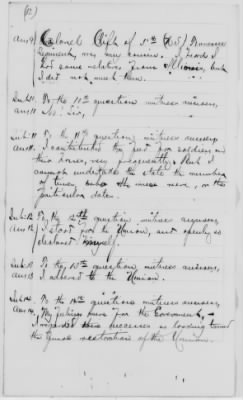 (2)
Ans 9 Colonel Clift of 5th (E5) Tennessee
Regiment, was my cousin. I heard I
had some relatives from Illinois, but
I did not meet them.
Int. 10. To the 10th question witness answers,
Ans 10 No: Sir,
Int. 11 To the 11th question witness answers
Ans 11. I contributed to feed soldiers on
this house, very frequently, but I
cannot undertake to state the number
of times, the same were, or the
particular dates.
Int. 12 To the 12th question witness answers
Ans 12 I stood for the Union, and openly so
declared myself.
Int. 13 To the 13th question, witness answers,
Ans 13 I adhered to the Union.
Int. 14. To the 14th question witness answers,
Ans 14. My feelings were for the Government,
I regarded their successes as leading toward
the restoration of the Union.